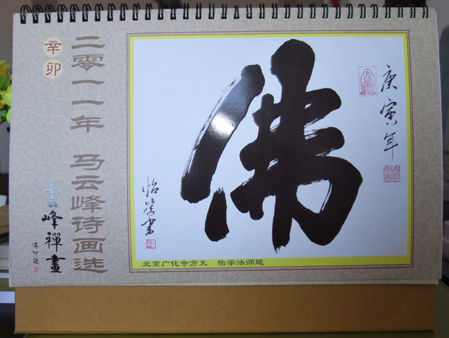 辛卯
二零一一年 马云峰诗画选
云峰禪畫
佛
庚寅年
怡学书
北京广化寺方丈 怡学法师题